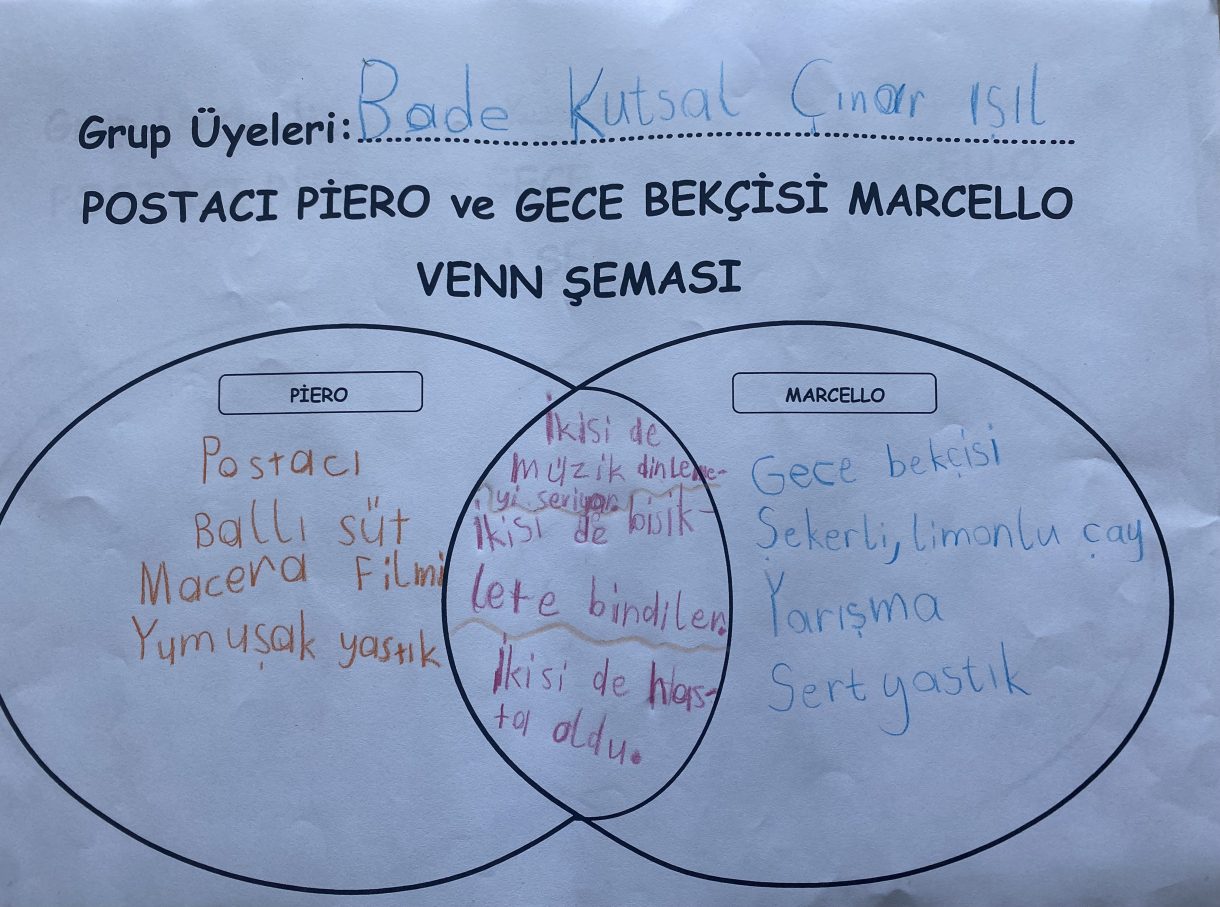 Grup Üyeleri: Bade Kutsal Çınar Işıl
POSTACI PİERO ve GECE BEKÇİSİ MARCELLO
VENN ŞEMASI
PİERO
Postacı
Ballı süt
Macera Filmi
Yumuşak yastık
İkisi de
müzik dinleme-
iyi seviyor.
İkisi de bisik-
lete bindiler.
İkisi de has-
ta oldu.
MARCELLO
Gece bekçisi
Şekerli, limonlu çay
Yarışma
Sert yastık